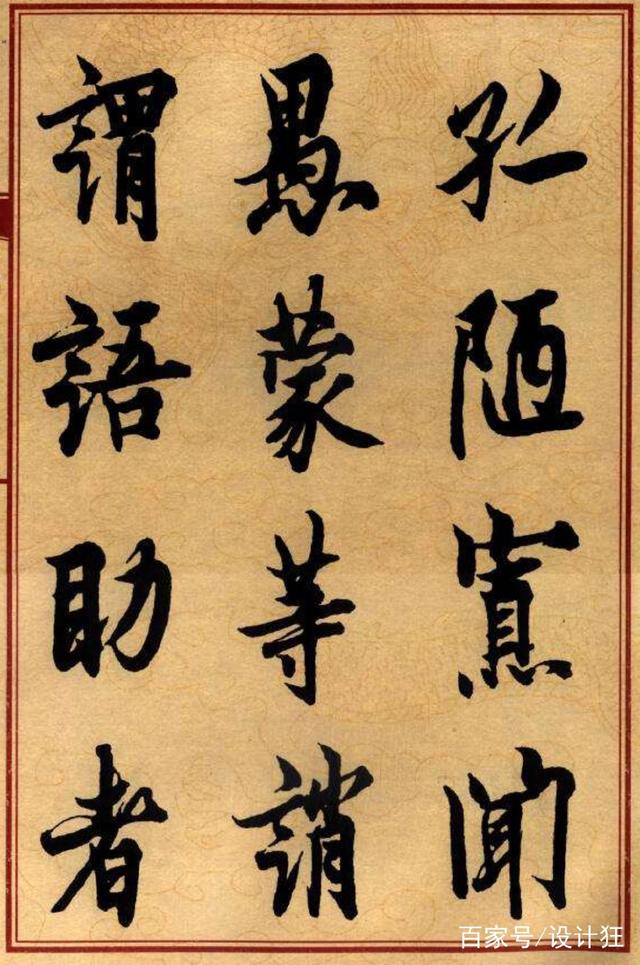 孤陋寡聞
愚蒙等誚
謂語助者
百家号/设计狂